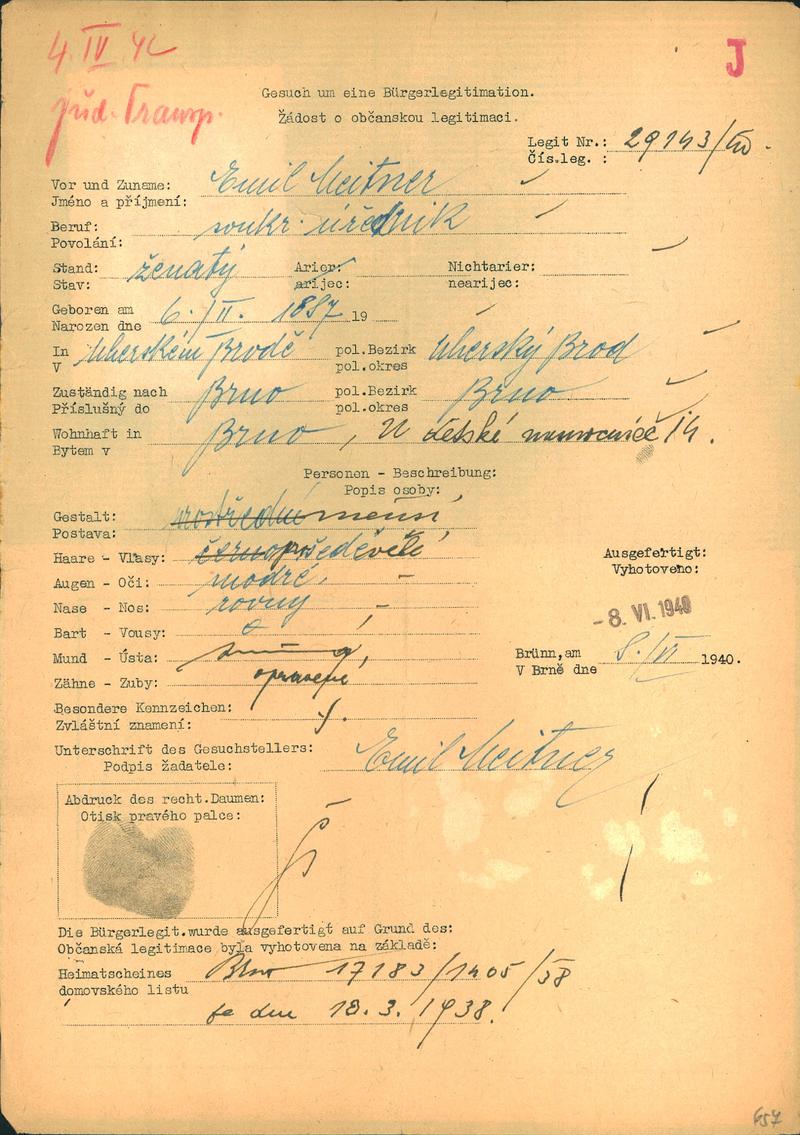 4. IV. 42
J
jüd. Transp.
Gesuch um eine Bürgerlegitimation.
Žádost o občanskou legitimaci.
Legit Nr.: 29143/
Čís.leg. :
Vor und Zuname: Emil Meitner
Jméno a příjmení:
Beruf: soukr. úředník
Povolání:
Stand: ženatý Arier: Nichtarier:
Stav: arijec: nearijec:
Geboren am 6./II. 1897 19
Narozen dne
In Uherském Brodě pol.Bezirk Uherský Brod
V pol.okres
Zuständig nach Brno pol.Bezirk Brno
Příslušný do pol.okres
Wohnhaft in Brno, U dětské nemocnice 14.
Bytem v
Personen - Beschreibung:
Popis osoby:
Gestalt: prostřední menší
Postava:
Haare - Vlasy: prošedivělé
Augen - Oči: modré
Nase - Nos: rovný
Bart - Vousy: 0
Mund - Ústa:
Zähne - Zuby: opravené
Ausgefertigt:
Vyhotoveno:
-8. VI. 1940
Brünn, am 8./VI 1940.
V Brně dne
Besondere Kennzeichen:
Zvláštní znamení:
Unterschrift des Gesuchstellers: Emil Meitner
Podpis žadatele:
Abdruck des recht.Daumen:
Otisk pravého palce:
Die Bürgerlegit.wurde ausgefertigt auf Grund des:
Občanská legitimace byla vyhotovena na základě:
Heimatscheines Brno 17183/1405/38
domovského listu
ze dne 18.3.1938.
657